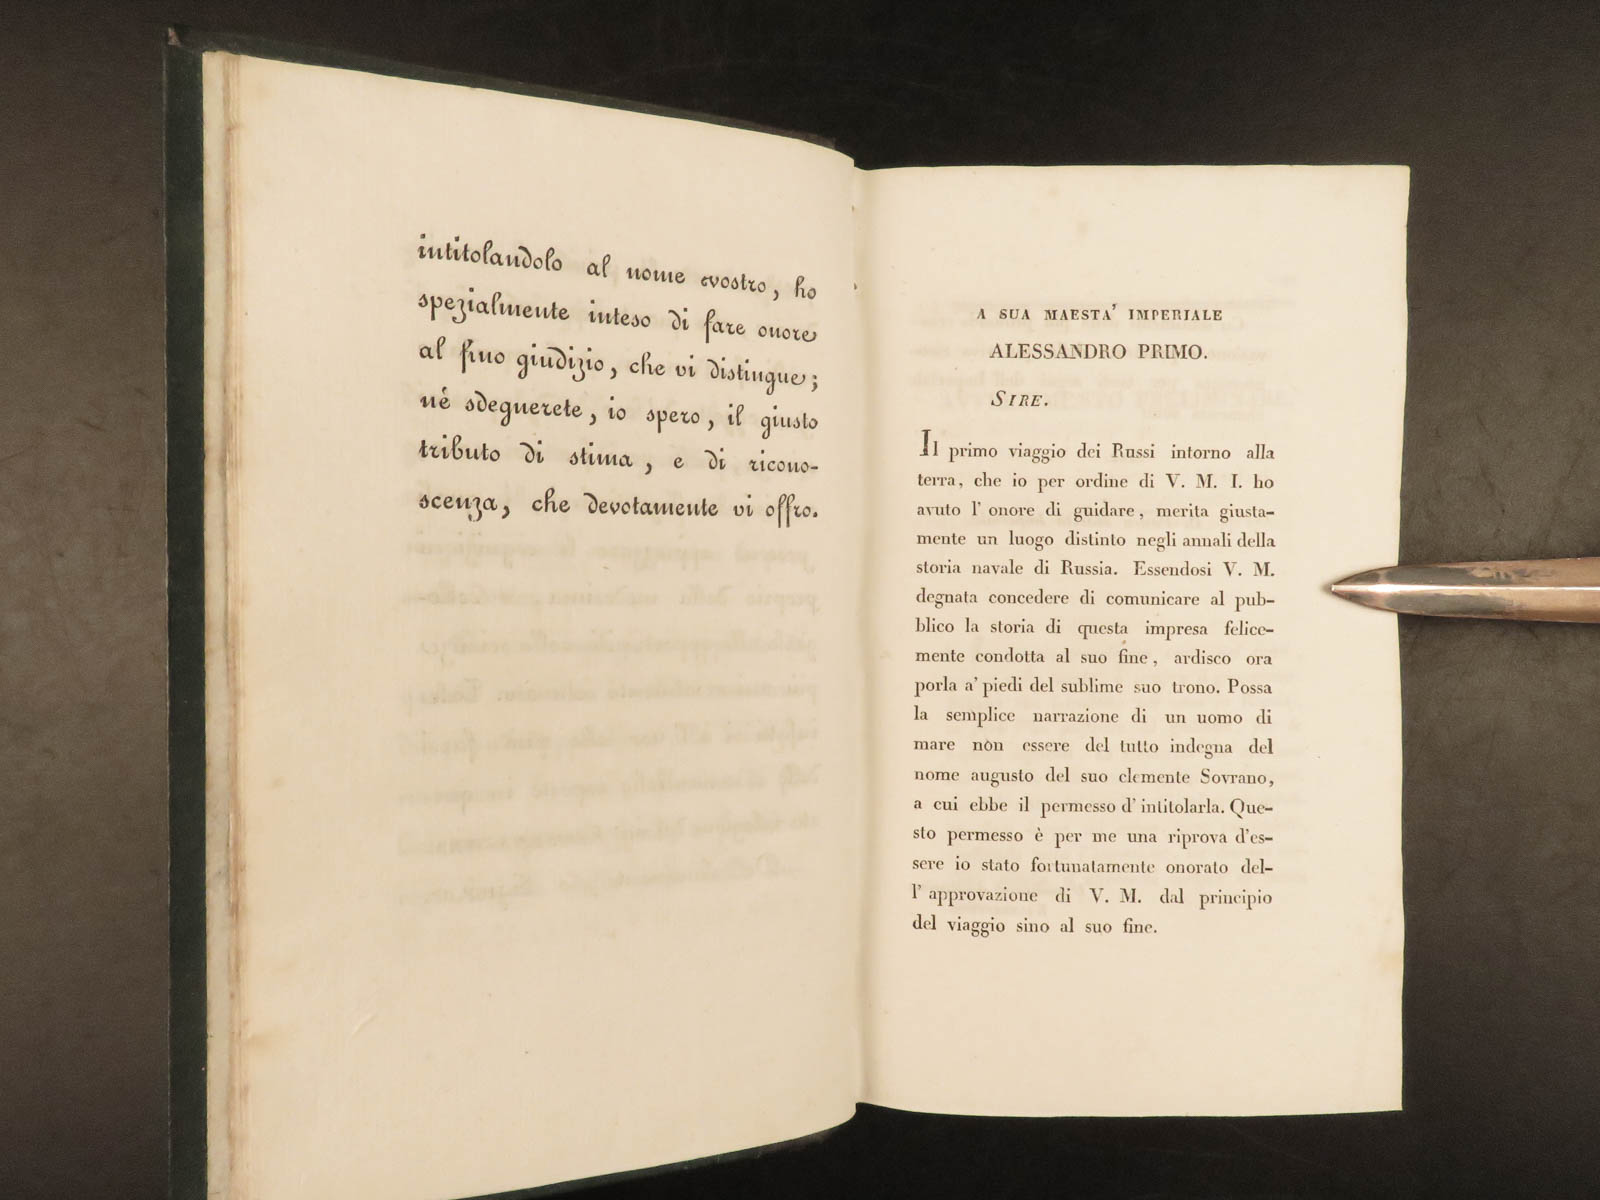 intitolandolo al nome vostro, ho
spezialmente inteso di fare onore
al fino giudizio, che vi distingue;
né sdegnerete, io spero, il giusto
tributo di stima, e di ricono-
scenza, che devotamente vi offro.
A SUA MAESTA' IMPERIALE
ALESSANDRO PRIMO.
SIRE.
Il primo viaggio dei Russi intorno alla
terra, che io per ordine di V. M. I. ho
avuto l' onore di guidare, merita giusta-
mente un luogo distinto negli annali della
storia navale di Russia. Essendosi V. M.
degnata concedere di comunicare al pub-
blico la storia di questa impresa felice-
mente condotta al suo fine, ardisco ora
porla a' piedi del sublime suo trono. Possa
la semplice narrazione di un uomo di
mare non essere del tutto indegna del
nome augusto del suo clemente Sovrano,
a cui ebbe il permesso d' intitolarla. Que-
sto permesso è per me una riprova d'es-
sere io stato fortunatamente onorato del-
l' approvazione di V. M. dal principio
del viaggio sino al suo fine.